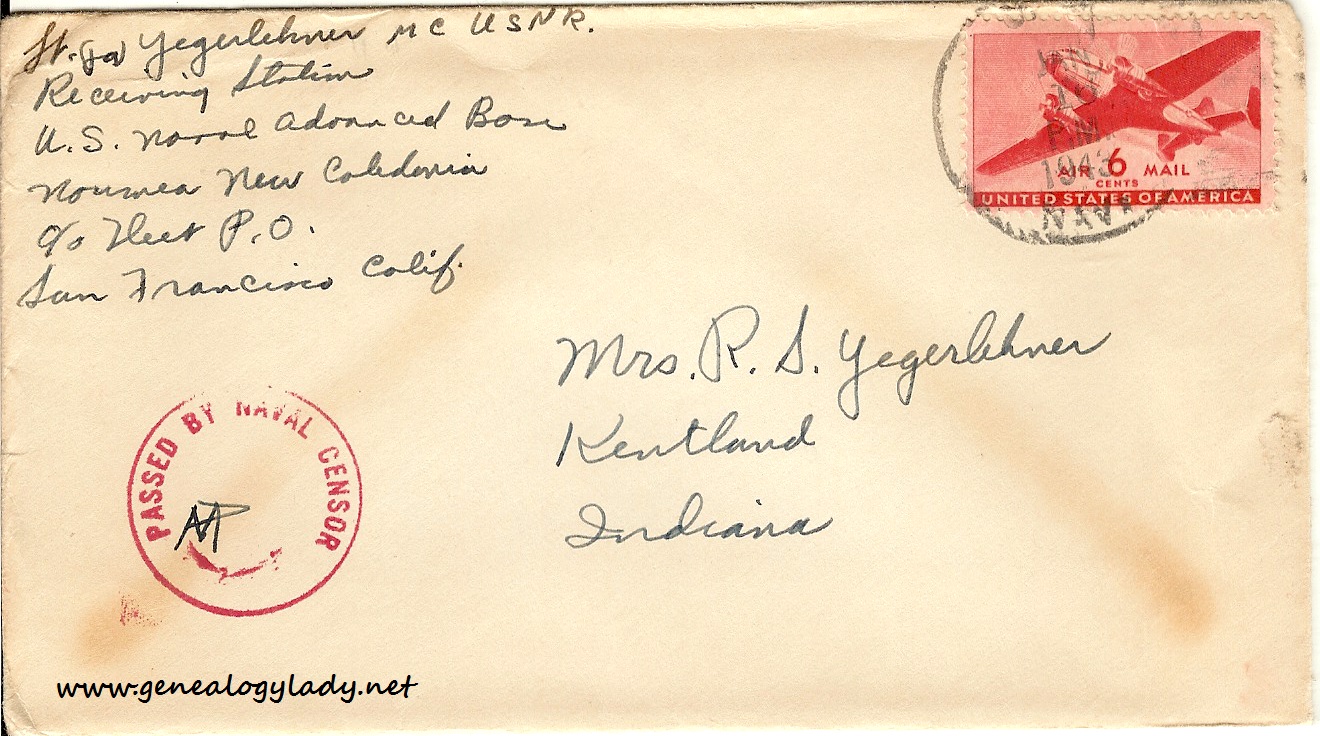 Lt. (jg) Yegerlehner MC USNR.
Receiving Station
U.S. Naval Advanced Base
Noumea New Caledonia
c/o Fleet P.O.
San Francisco Calif.
JAN
PM
1943
NAVY
AIR 6 MAIL
CENTS
UNITED STATES OF AMERICA
Mrs. R. S. Yegerlehner
Kentland
Indiana
PASSED BY NAVAL CENSOR
www.genealogylady.net